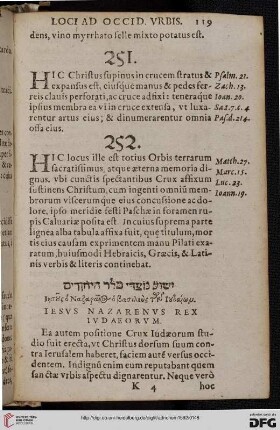 LOCI AD OCCID. VRBIS. 119
dens, vino myrrhato felle mixto potatus est.
251.
HIC Christus supinus in crucem stratus & Psalm. 21.
expansus est, eiusque manus & pedes fer- Zach. 13.
reis clauis perforati, ac cruce adfixi: teneraque Ioan. 20.
ipsius membra ea vi in cruce extensa, vt luxa-
rentur artus eius; & dinumerarentur omnia
ossa eius.
252.
HIC locus ille est totius Orbis terrarum
sacratissimus, atque æterna memoria di- Matth. 27.
gnus, vbi cunctis spectantibus Crux affixum Marc. 15.
sustinens Christum, cum ingenti omniũ mem- Luc. 23.
brorum viscerumque eius concussione ac do- Ioann. 19.
lore, ipso meridie festi Paschæ in foramen ru-
pis Caluariæ posita est. In cuius suprema parte
lignea alba tabella affixa fuit, quę titulum, mor
tis eius causam exprimentem manu Pilati exa-
ratum, huiusmodi Hebraicis, Græcis, & Lati-
nis verbis & literis continebat.
IESVS NAZARENVS REX
IVDAEORVM.
Ea autem positione Crux Iudæorum stu-
dio fuit erecta, vt Christus dorsum suum con-
tra Ierusalem haberet, faciem autẽ versus occi-
dentem. Indignũ enim eum reputabant quem
sanctæ vrbis aspectu dignarentur. Neque verò
K 4 hoc